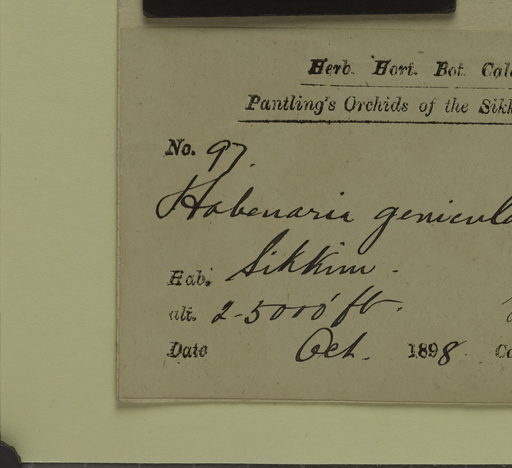 Herb. Hort. Bot. Calc
Pantling's Orchids of the Sikk
No. 97.
Habenaria genicula
Hab. Sikkim.
alt. 2-5000 ft.
Date Oct. 1898 Co